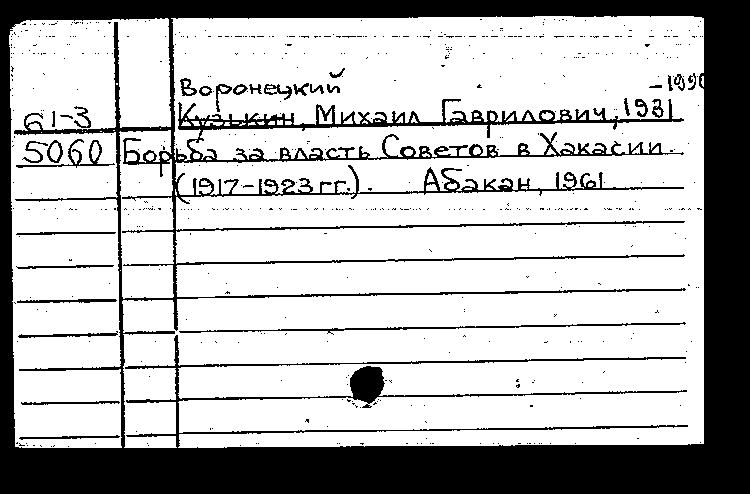 Воронецкий
-1990
61-3 Кузькин, Михаил Гаврилович, 1931
5060 Борьба за власть Советов в Хакасии.
(1917-1923 гг.). Абакан, 1961.